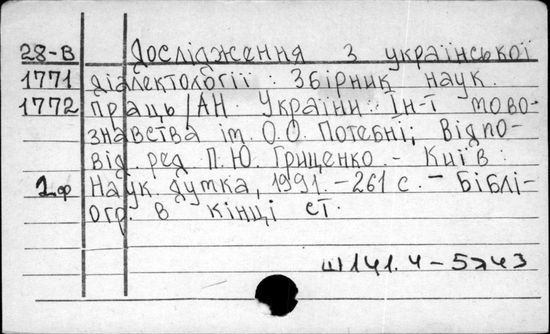 28-В Дослідження з української
1771 діалектології : Збірник наук.
1772 праць / АН України. Ін-т мово-
знавства ім. О.О. Потебні; Відпо-
від. ред. П.Ю. Гриценко. - Київ :
1ф Наук. думка, 1991. - 261 с. - Біблі-
огр. в кінці ст.
Ш141.4-5я43